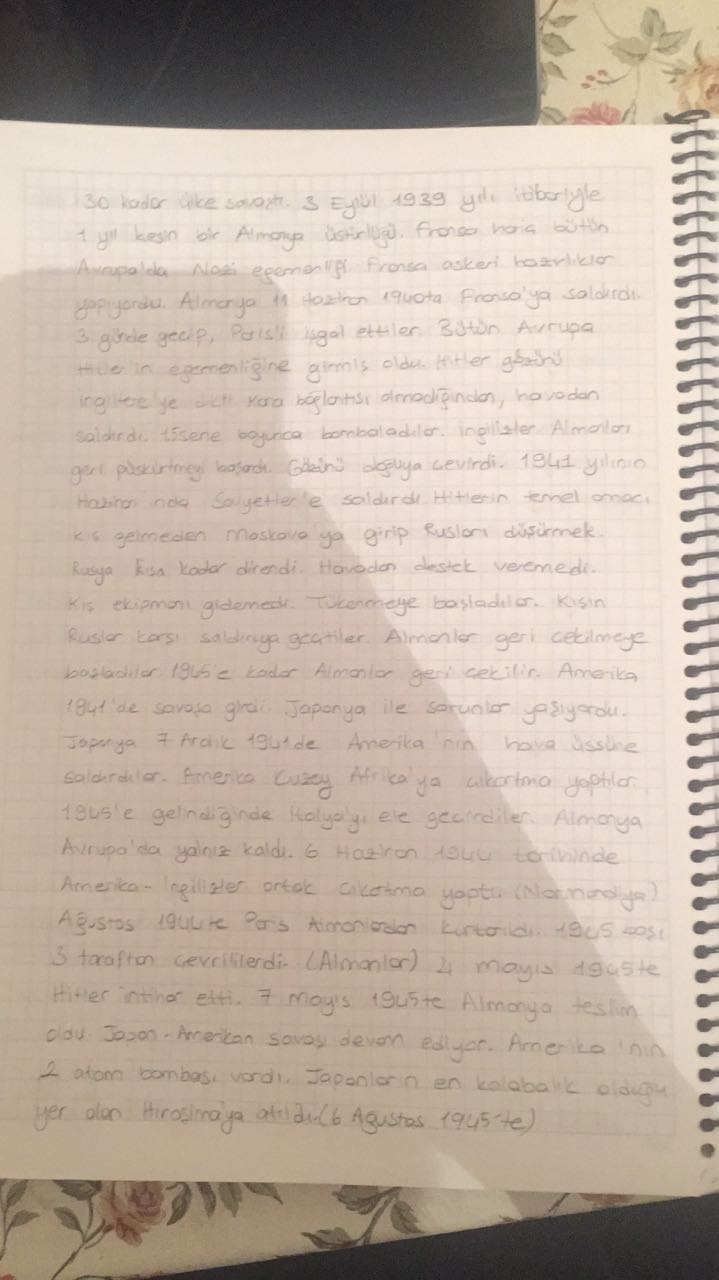 30 kadar ülke savaştı. 3 Eylül 1939 yılı itibariyle
1 yıl kesin bir Almanya üstünlüğü. Fransa hariç bütün
Avrupa'da Nazi egemenliği. Fransa askeri hazırlıklar
yapıyordu. Almanya 11 Haziran 1940ta Fransa'ya saldırdı.
3 günde geçip, Paris'i işgal ettiler. Bütün Avrupa
Hitler'in egemenliğine girmiş oldu. Hitler gözünü
ingiltere'ye dikti Kara bağlantısı olmadığından, havadan
saldırdı. 15sene boyunca bombaladılar. ingilizler Almanları
geri püskürtmeyi başardı. Gözünü doğuya çevirdi. 1941 yılının
Haziran'nda Sovyetler'e saldırdı Hitlerin temel amacı
kış gelmeden Moskova'ya girip Rusları düşürmek.
Rusya kışa kadar direndi. Havadan destek veremedi.
Kış ekipmanı gidemedi. Tükenmeye başladılar. Kışın
Ruslar karşı saldırıya geçtiler. Almanlar geri çekilmeye
başladılar 1945'e kadar Almanlar geri çekilir. Amerika
1941'de savaşa girdi. Japonya ile sorunlar yaşıyordu.
Japonya 7 Aralık 1941de Amerika'nın hava üssüne
saldırdılar. Amerika Kuzey Afrika'ya çıkartma yaptılar
1945'e gelindiğinde italya'yı ele geçirdiler. Almanya
Avrupa'da yalnız kaldı. 6 Haziran 1944 tarihinde
Amerika-ingilizler ortak çıkartma yaptı. (Normandiya)
Ağustos 1944te Paris Almanlardan kurtarıldı. 1945 başı
3 taraftan çevrililerdi. (Almanlar) 4 mayıs 1945te
Hitler intihar etti. 7 Mayıs 1945te Almanya teslim
oldu Japon-Amerikan savaşı devam ediyor. Amerika'nın
2 atom bombası vardı. Japonların en kalabalık olduğu
yer olan Hiroşima'ya atıldı.(6 Ağustos 1945'te)